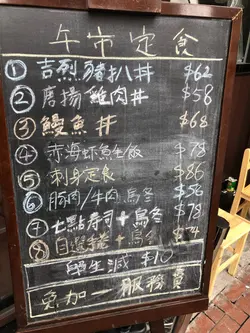 午市定食
① 吉烈豬扒丼 $62
② 唐揚雞肉丼 $58
③ 鰻魚丼 $68
④ 赤海虾魚生飯 $78
⑤ 刺身定食 $86
⑥ 豚肉/牛肉烏冬 $56
⑦ 七點寿司+烏冬 $78
⑧ 自選手卷+烏冬 $74
學生減 $10
免加一服務費